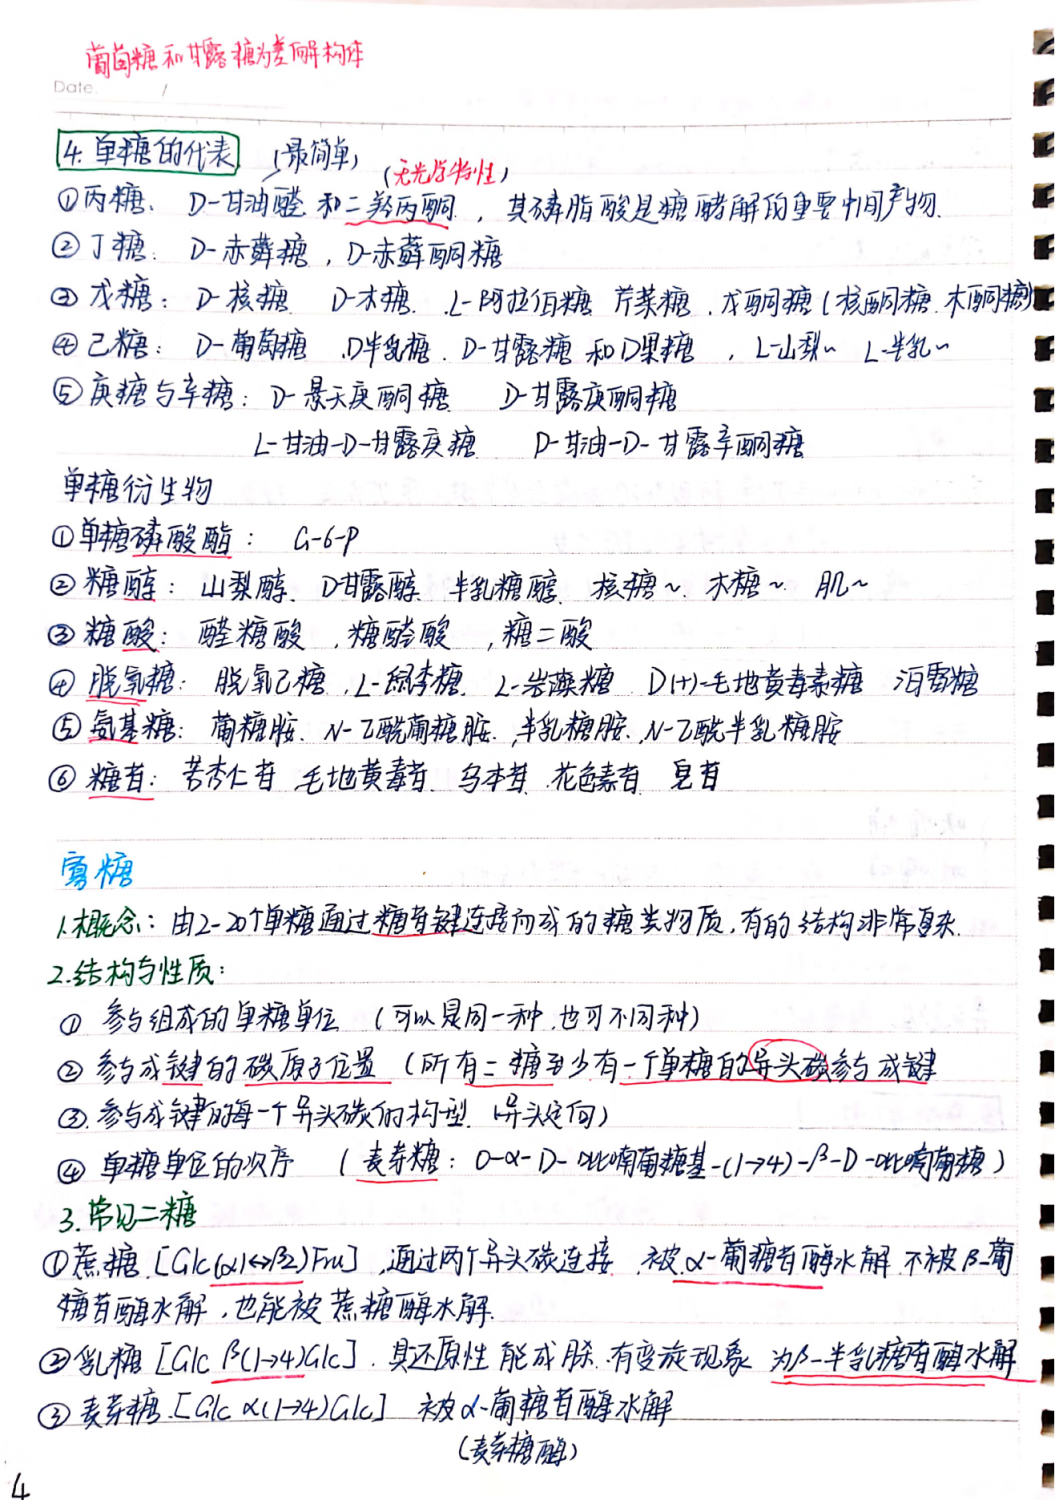 葡萄糖和甘露糖为差向异构体
Date. /
4. 单糖的代表 (最简单) (无光学特性)
①丙糖、 D-甘油醛 和二羟丙酮 , 其磷脂酸是糖酵解的重要中间产物.
②丁糖: D-赤藓糖 , D-赤藓酮糖
③戊糖: D-核糖 D-木糖 . L-阿拉伯糖 芹菜糖 . 戊酮糖 (核酮糖. 木酮糖)
④己糖: D-葡萄糖 .D半乳糖. D-甘露糖 和D果糖 , L-山梨~ L-半乳~
⑤庚糖与辛糖: D-景天庚酮糖 D-甘露庚酮糖
L-甘油-D-甘露庚糖 D-甘油-D-甘露辛酮糖
单糖衍生物
①单糖磷酸酯: G-6-P
②糖醇: 山梨醇. D甘露醇. 半乳糖醇. 核糖~. 木糖~ 肌~
③糖酸: 醛糖酸 , 糖醛酸 , 糖二酸
④脱氧糖: 脱氧己糖 . L-鼠李糖. L-岩藻糖 D(+)-毛地黄毒素糖 泊雷糖
⑤氨基糖: 葡糖胺. N-乙酰葡糖胺. 半乳糖胺. N-乙酰半乳糖胺
⑥糖苷: 苦杏仁苷 毛地黄毒苷. 乌本苷. 花色素苷 皂苷
寡糖
1.概念: 由2-20个单糖通过糖苷键连接而成的糖类物质, 有的结构非常复杂.
2.结构与性质:
① 参与组成的单糖单位 (可以是同一种.也可不同种)
② 参与成键的碳原子位置 (所有二糖至少有一个单糖的异头碳参与成键
③.参与成键的每一个异头碳的构型 (异头定向)
④ 单糖单位的次序 (麦芽糖: O-α-D-吡喃葡糖基-(1→4)-β-D-吡喃葡糖)
3.常见二糖
①蔗糖.[Glc(α1↔β2)Fru] ,通过两个异头碳连接 .被α-葡糖苷酶水解 不被β-葡
糖苷酶水解 , 也能被蔗糖酶水解.
②乳糖 [Glc β(1→4)Glc] . 具还原性 能成脎. 有变旋现象 为β-半乳糖苷酶水解
③麦芽糖.[Glc α(1→4)Glc] 被α-葡糖苷酶水解
(麦芽糖酶)
4